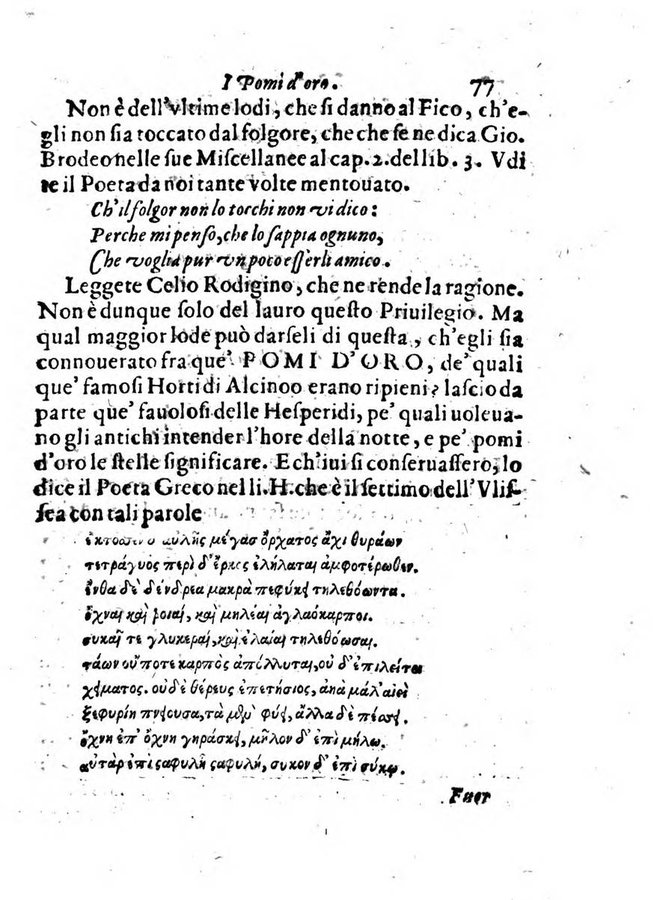 I Pomi d'oro. 77
Non è dell'vltime lodi, che si danno al Fico, ch'e-
gli non sia toccato dal folgore, che che se ne dica Gio.
Brodeo nelle sue Miscellanee al cap. 2. del lib. 3. Vdi
te il Poeta da noi tante volte mentouato.
Ch'il folgor non lo tocchi non vi dico:
Perche mi penso, che lo sappia ognuno,
Che voglia pur vn poco esserli amico.
Leggete Celio Rodigino, che ne rende la ragione.
Non è dunque solo del lauro questo Priuilegio. Ma
qual maggior lode può darseli di questa, ch'egli sia
connouerato fra que' POMI D'ORO, de' quali
que' famosi Horti di Alcinoo erano ripieni? lascio da
parte que' fauolosi delle Hesperidi, pe' quali uoleua-
no gli antichi intender l'hore della notte, e pe' pomi
d'oro le stelle significare. E ch'iui si conseruassero, lo
dice il Poeta Greco nel li. H. che è il settimo dell'Vlis-
sea con tali parole
αὐλῆς μέγας ὄρχατος ἄχι θυράων
τετράγυος περὶ δ' ἕρκες ἐλήλαται ἀμφοτέρωθεν.
ἔνθα δὲ δένδρεα μακρὰ πεφύκει τηλεθόωντα.
ὄχναι καὶ ροιαί, καὶ μηλέαι ἀγλαόκαρποι.
συκαῖ τε γλυκεραί, καὶ ἐλαίαι τηλεθόωσαι.
τάων οὔποτε καρπὸς ἀπόλλυται, οὐ δ' ἐπιλείπει
χείματος. οὐ δὲ θέρευς ἐπετήσιος, ἀλλὰ μάλ' αἰεὶ
ζεφυρίη πνείουσα, τὰ μὲν φύει, ἄλλα δὲ πέσσει.
ὄχνη ἐπ' ὄχνη γηράσκει, μῆλον δ' ἐπὶ μήλῳ.
αὐτὰρ ἐπὶ σαφυλῇ σαφυλή, σῦκον δ' ἐπὶ σύκῳ.
Fuor